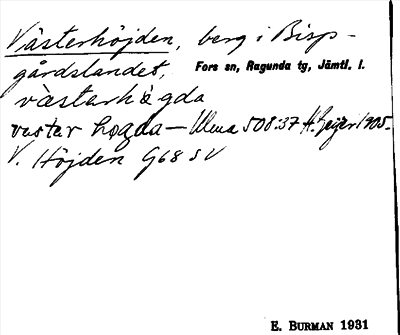 Västerhöjden, berg i Bisp-
gårdslandet, Fors sn, Ragunda tg, Jämtl. l.
västarhögda
vastar hogda — Ulma 508:37 H. Geijer 1905.
V. Höjden G68 SV
E. BURMAN 1931